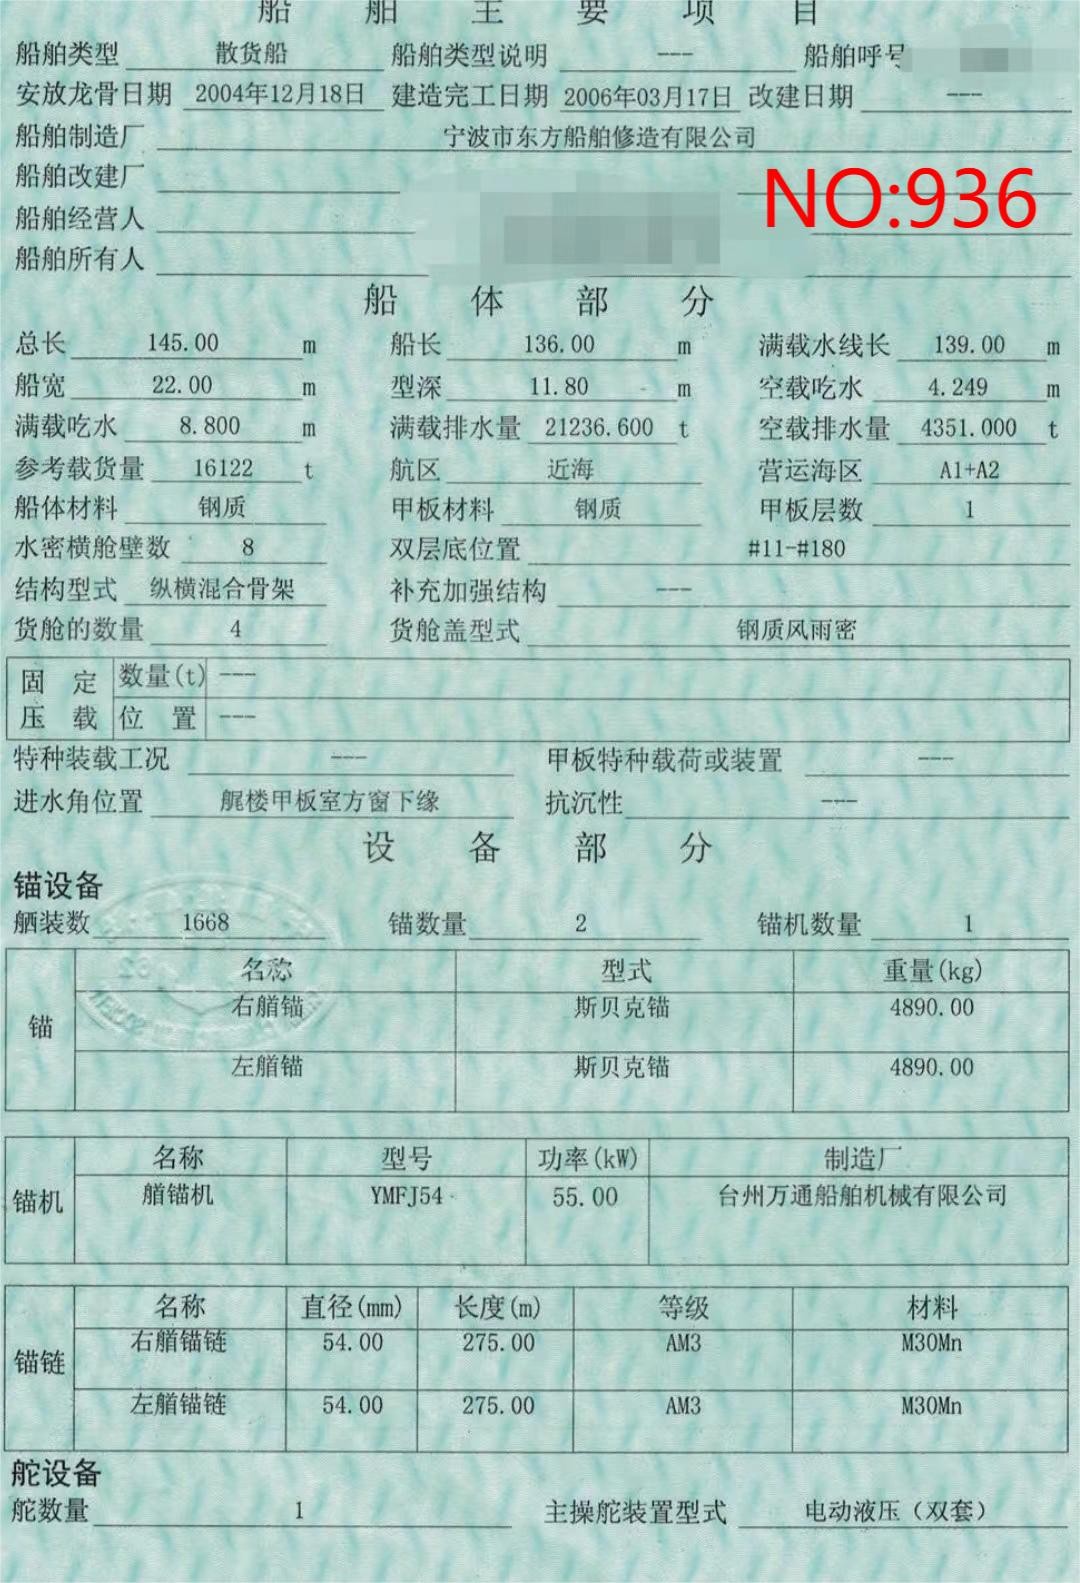 船舶主要项目
船舶类型 散货船 船舶类型说明 --- 船舶呼号
安放龙骨日期 2004年12月18日 建造完工日期 2006年03月17日 改建日期 ---
船舶制造厂 宁波市东方船舶修造有限公司
船舶改建厂
NO:936
船舶经营人
船舶所有人
船体部分
总长 145.00 m 船长 136.00 m 满载水线长 139.00 m
船宽 22.00 m 型深 11.80 m 空载吃水 4.249 m
满载吃水 8.800 m 满载排水量 21236.600 t 空载排水量 4351.000 t
参考载货量 16122 t 航区 近海 营运海区 A1+A2
船体材料 钢质 甲板材料 钢质 甲板层数 1
水密横舱壁数 8 双层底位置 #11-#180
结构型式 纵横混合骨架 补充加强结构 ---
货舱的数量 4 货舱盖型式 钢质风雨密
固定压载 数量(t) ---
位置 ---
特种装载工况 --- 甲板特种载荷或装置 ---
进水角位置 艉楼甲板室方窗下缘 抗沉性 ---
设备部分
锚设备
舾装数 1668 锚数量 2 锚机数量 1
锚 名称 型式 重量(kg)
右艏锚 斯贝克锚 4890.00
左艏锚 斯贝克锚 4890.00
锚机 名称 型号 功率(kW) 制造厂
艏锚机 YMFJ54 55.00 台州万通船舶机械有限公司
锚链 名称 直径(mm) 长度(m) 等级 材料
右艏锚链 54.00 275.00 AM3 M30Mn
左艏锚链 54.00 275.00 AM3 M30Mn
舵设备
舵数量 1 主操舵装置型式 电动液压（双套）